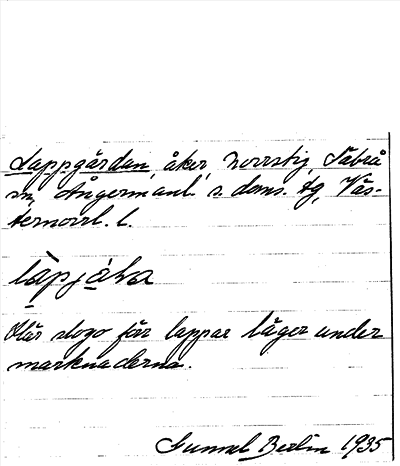 Lappgårdan, åker, Norrstig, Säbrå
sn, Ångermanl. s. doms. tg, Väs-
ternorrl. l.
Här slogo för lappar läger under
marknaderna.
Gunnel Berlin 1935